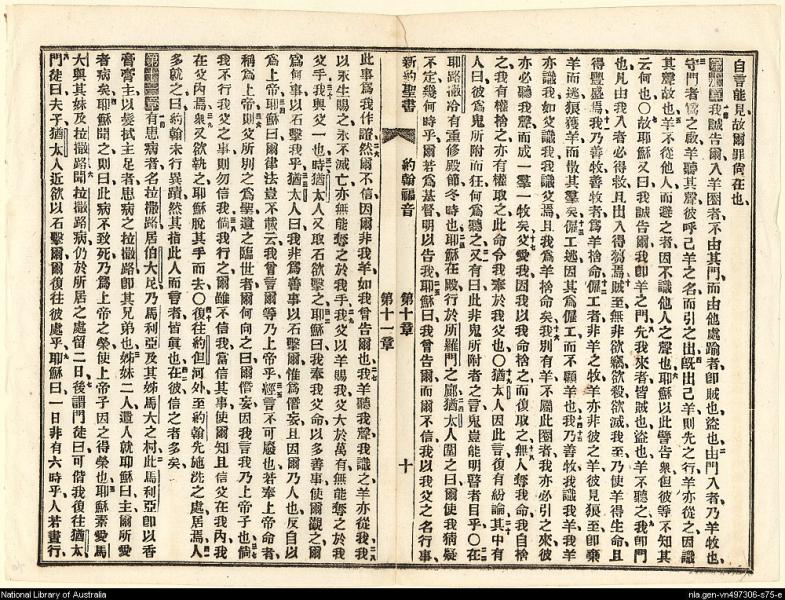 自言能見故爾罪尚在也
第十章我誠告爾入羊圈者不由其門而由他處踰者卽賊也盜也由門入者乃羊牧也
守門者爲之啟羊聽其聲彼呼己羊之名而引之出旣出己羊則先之行羊亦從之因識
其聲故也羊不從他人而避之者因不識他人之聲也耶穌以此譬告衆但彼等不知其
云何也〇故耶穌又曰我誠告爾我卽羊之門先我來者皆賊也盜也羊不聽之我卽門
也凡由我入者必得救且出入得芻焉賊至無非欲竊欲殺欲滅我至乃使羊得生命且
得豐盛焉我乃善牧善牧者爲羊捨命傭工者非羊之牧羊亦非彼之羊彼見狼至卽棄
羊而逃狼獲羊而散其羣矣傭工逃因其爲傭工而不顧羊也我乃善牧我識我羊我羊
亦識我如父識我我識父焉且我爲羊捨命矣我別有羊不屬此圈者我亦必引之來彼
亦必聽我聲而成一羣一牧矣父愛我因我以我命捨之而復取之無人奪我命我自捨
之我有權捨之亦有權取之此命令我奉於我父也〇猶太人因此言復有紛論其中有
人曰彼爲鬼所附而狂何爲聽之又有曰此非鬼所附者之言鬼豈能明瞽者目乎〇在
耶路撒冷有重修殿節冬時也耶穌在殿行於所羅門之廊猶太人圍之曰爾使我猜疑
不定幾何時乎爾若爲基督明以告我耶穌曰我曾告爾而爾不信我以我父之名行事
新約聖書 約翰福音 第十章 第十一章 十
此事爲我作證然爾不信因爾非我羊如我曾告爾也我羊聽我聲我識之羊亦從我我
以永生賜之永不滅亡亦無能奪之於我手我父以羊賜我父大於萬有無能奪之於我
父手我與父一也時猶太人又取石欲擊之耶穌曰我奉我父命以多善事使爾觀之爾
爲何事以石擊我乎猶太人曰我非爲善事以石擊爾惟爲僭妄且因爾乃人也反自以
爲上帝耶穌曰爾律法豈不載云我曾言爾等乃上帝乎經言不可廢也若奉上帝命者
稱爲上帝則父所別之爲聖遣之臨世者爾何向之曰爾僭妄因我言我乃上帝子也倘
我不行我父之事則勿信我倘我行之爾雖不信我當信其事使爾知且信父在我內我
在父內焉衆又欲執之耶穌脫其手而去〇復往約但河外至約翰先施洗之處居焉人
多就之曰約翰未行異蹟然其指此人而言者皆眞也在彼信之者多矣
第十一章有患病者名拉撒路居伯大尼乃馬利亞及其姊馬大之村此馬利亞卽以香
膏膏主以髮拭主足者患病之拉撒路卽其兄弟也姊妹二人遣人就耶穌曰主爾所愛
者病矣耶穌聞之則曰此病不致死乃爲上帝之榮使上帝子因之得榮也耶穌素愛馬
大與其妹及拉撒路聞拉撒路病仍於所居之處留二日後謂門徒曰可偕我復往猶太
門徒曰夫子猶太人近欲以石擊爾爾復往彼處乎耶穌曰一日非有六時乎人若晝行
National Library of Australia
nla.gen-vn497306-s75-e